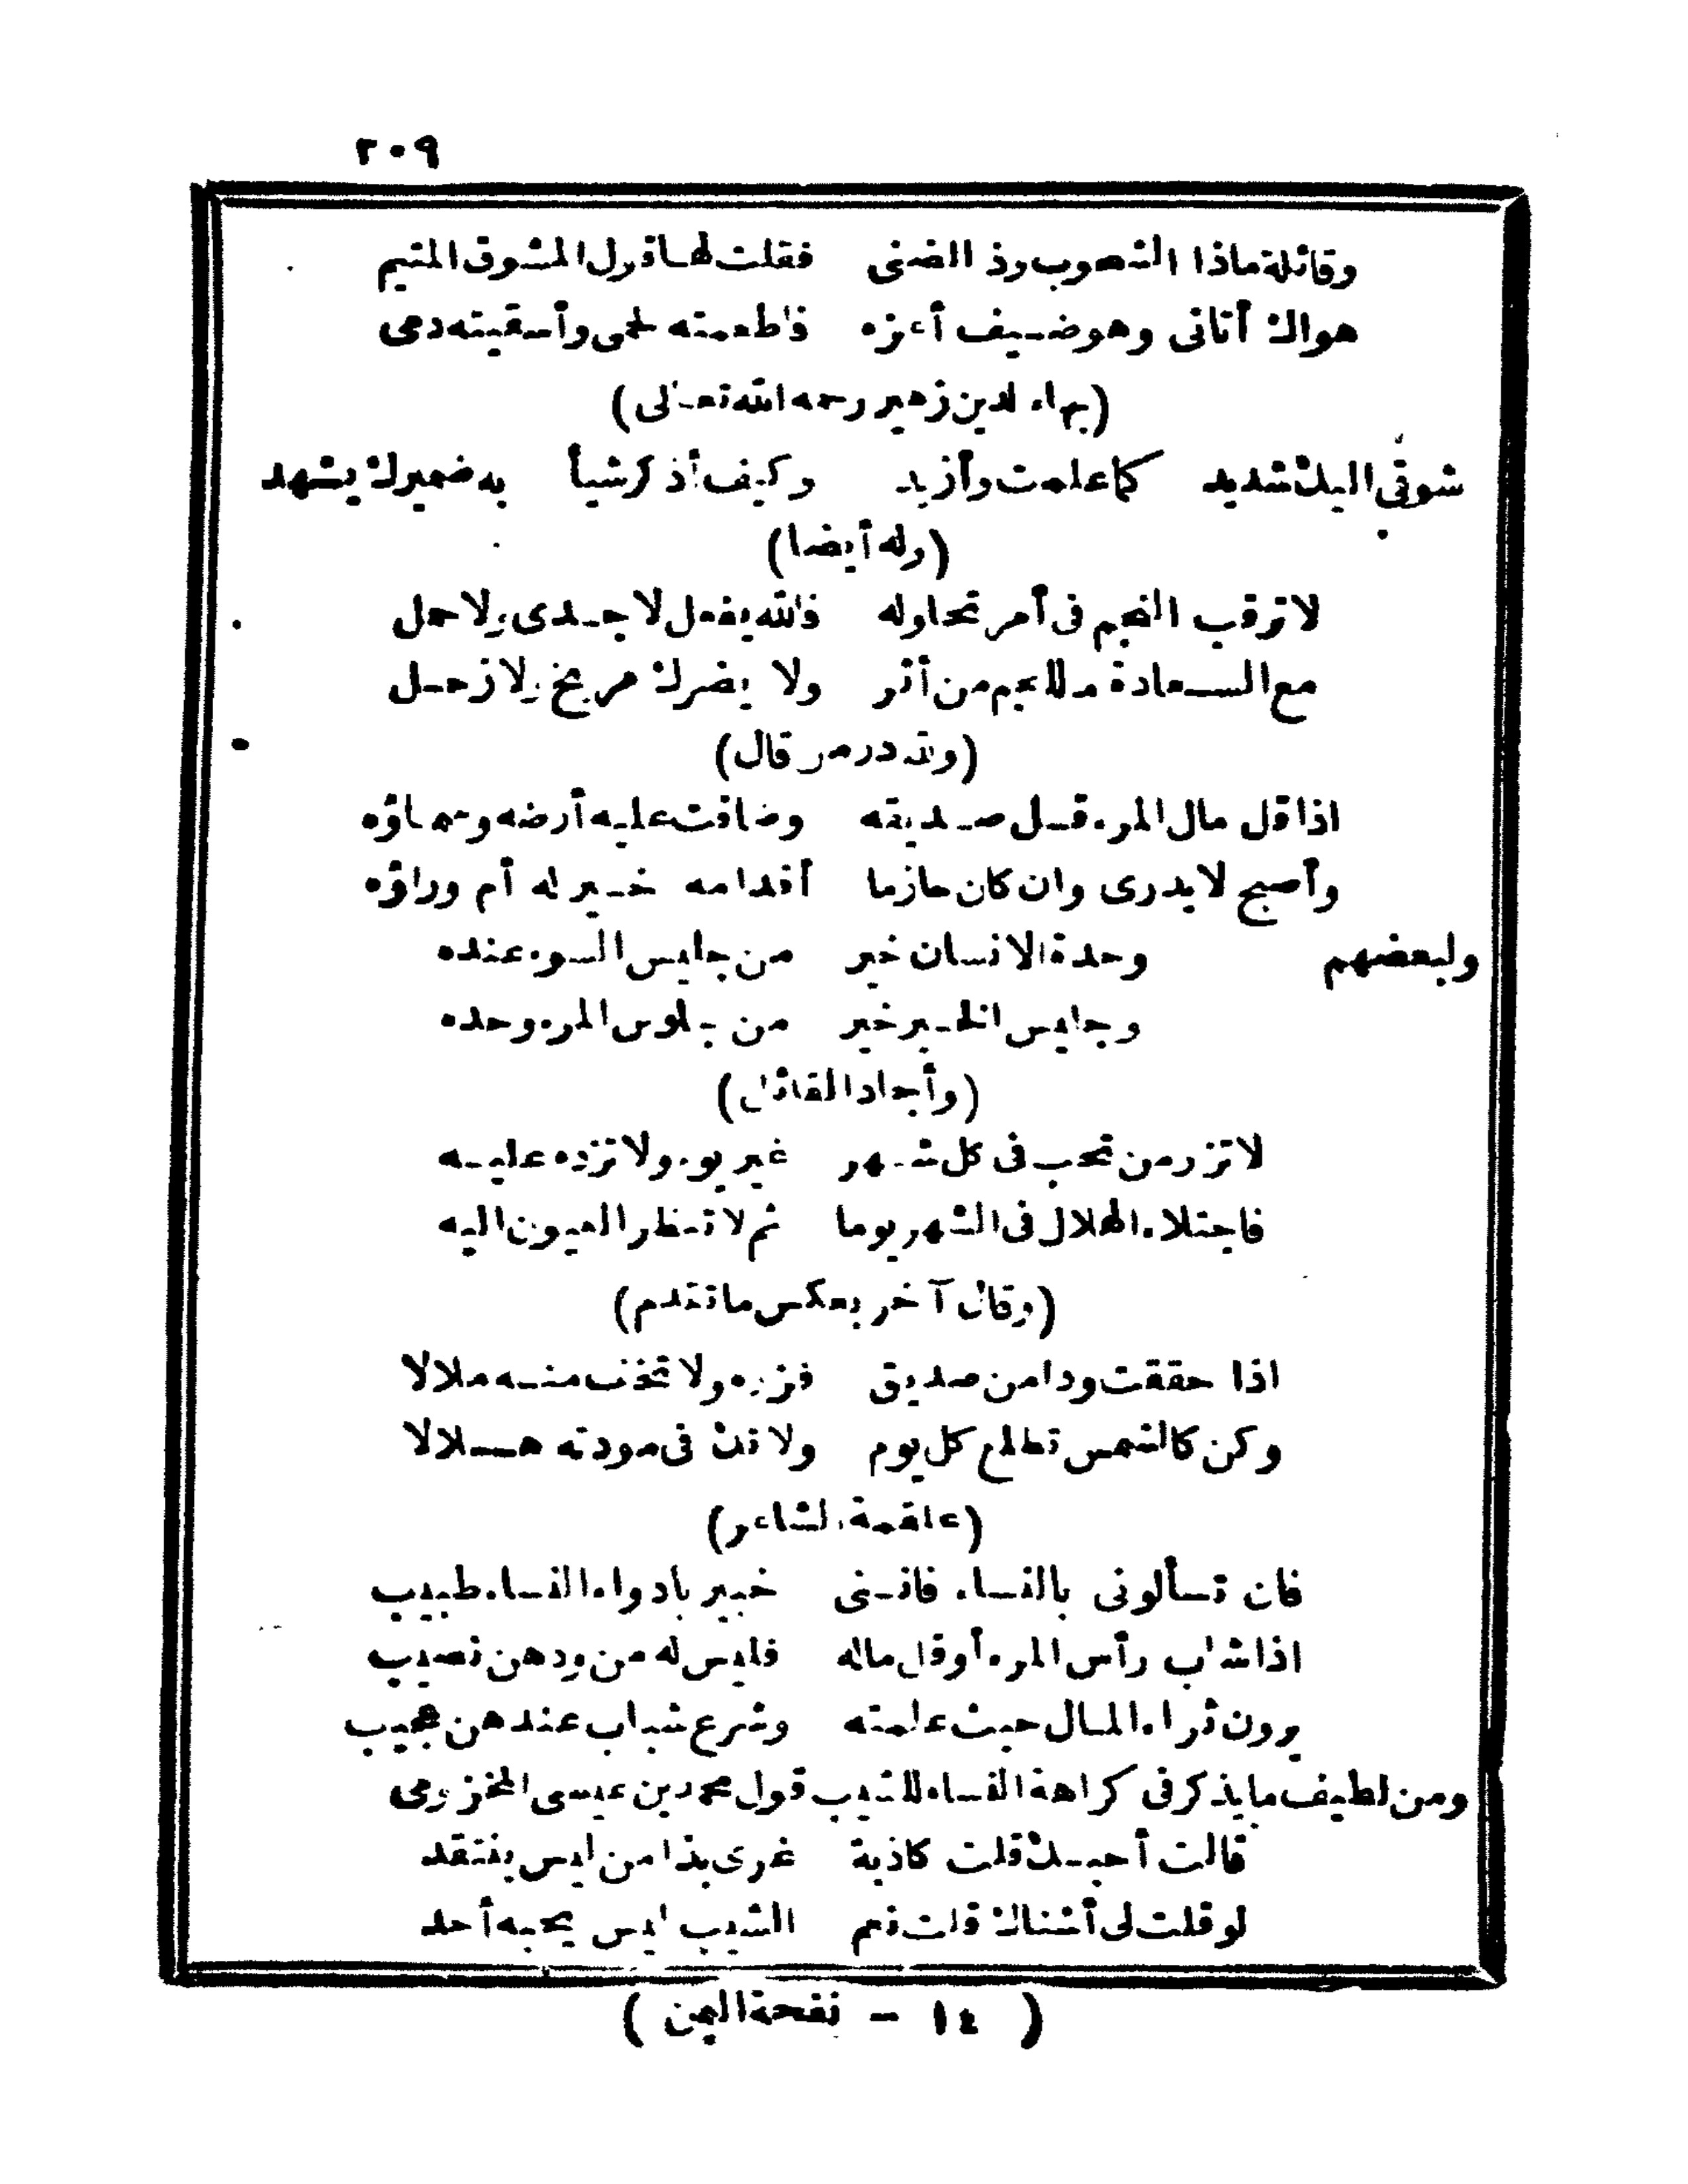 ٢٠٩
وقائلة ماذا الشحوب وذ الضنى فقلت لها قول المشوق المتيم
هواك أتانى وهو ضيف أعزه فاطعمته لحمى وأسقيته دمى
(بهاء لدين زهير رحمه الله تعالى)
شوقى اليك شديد كما علمت وأزيد وكيف أذكر شيأ به ضميرك يشهد
(وله أيضا)
لا ترقب النجم فى أمر تحاوله فالله يفعل لا جدى ولا حمل
مع السعادة ما للنجم من أثر ولا يضرك مريخ ولا زحل
(ولله در من قال)
اذا قل مال المرء قل صديقه وضاقت عليه أرضه وسماؤه
وأصبح لا يدرى وان كان حازما أقدامه خير له أم وراؤه
ولبعضهم وحدة الانسان خير من جليس السوء عنده
وجليس الخير خير من جلوس المرء وحده
(وأجاد القائل)
لا تزر من تحب فى كل شهر غير يوم ولا تزده عليه
فاجتلاء الهلال فى الشهر يوما ثم لا تنظر العيون اليه
(وقال آخر بعكس ما تقدم)
اذا حققت ودا من صديق فزره ولا تخف منه ملالا
وكن كالشمس تطلع كل يوم ولا تك فى مودته هلالا
(علقمة الشاعر)
فان تسألونى بالنساء فاننى خبير بادواء النساء طبيب
اذا شاب رأس المرء أو قل ماله فليس له من ودهن نصيب
يرون ثراء المال حيث علمته وشرع شباب عندهن عجيب
ومن لطيف ما يذكر فى كراهة النساء للشيب قول محمد بن عيسى المخزومى
قالت أحبك قلت كاذبة غرى بذا من ليس ينتقد
لو قلت لى أشناك قلت نعم الشيب ليس يحبه أحد
( ١٤ - نفحة اليمن )